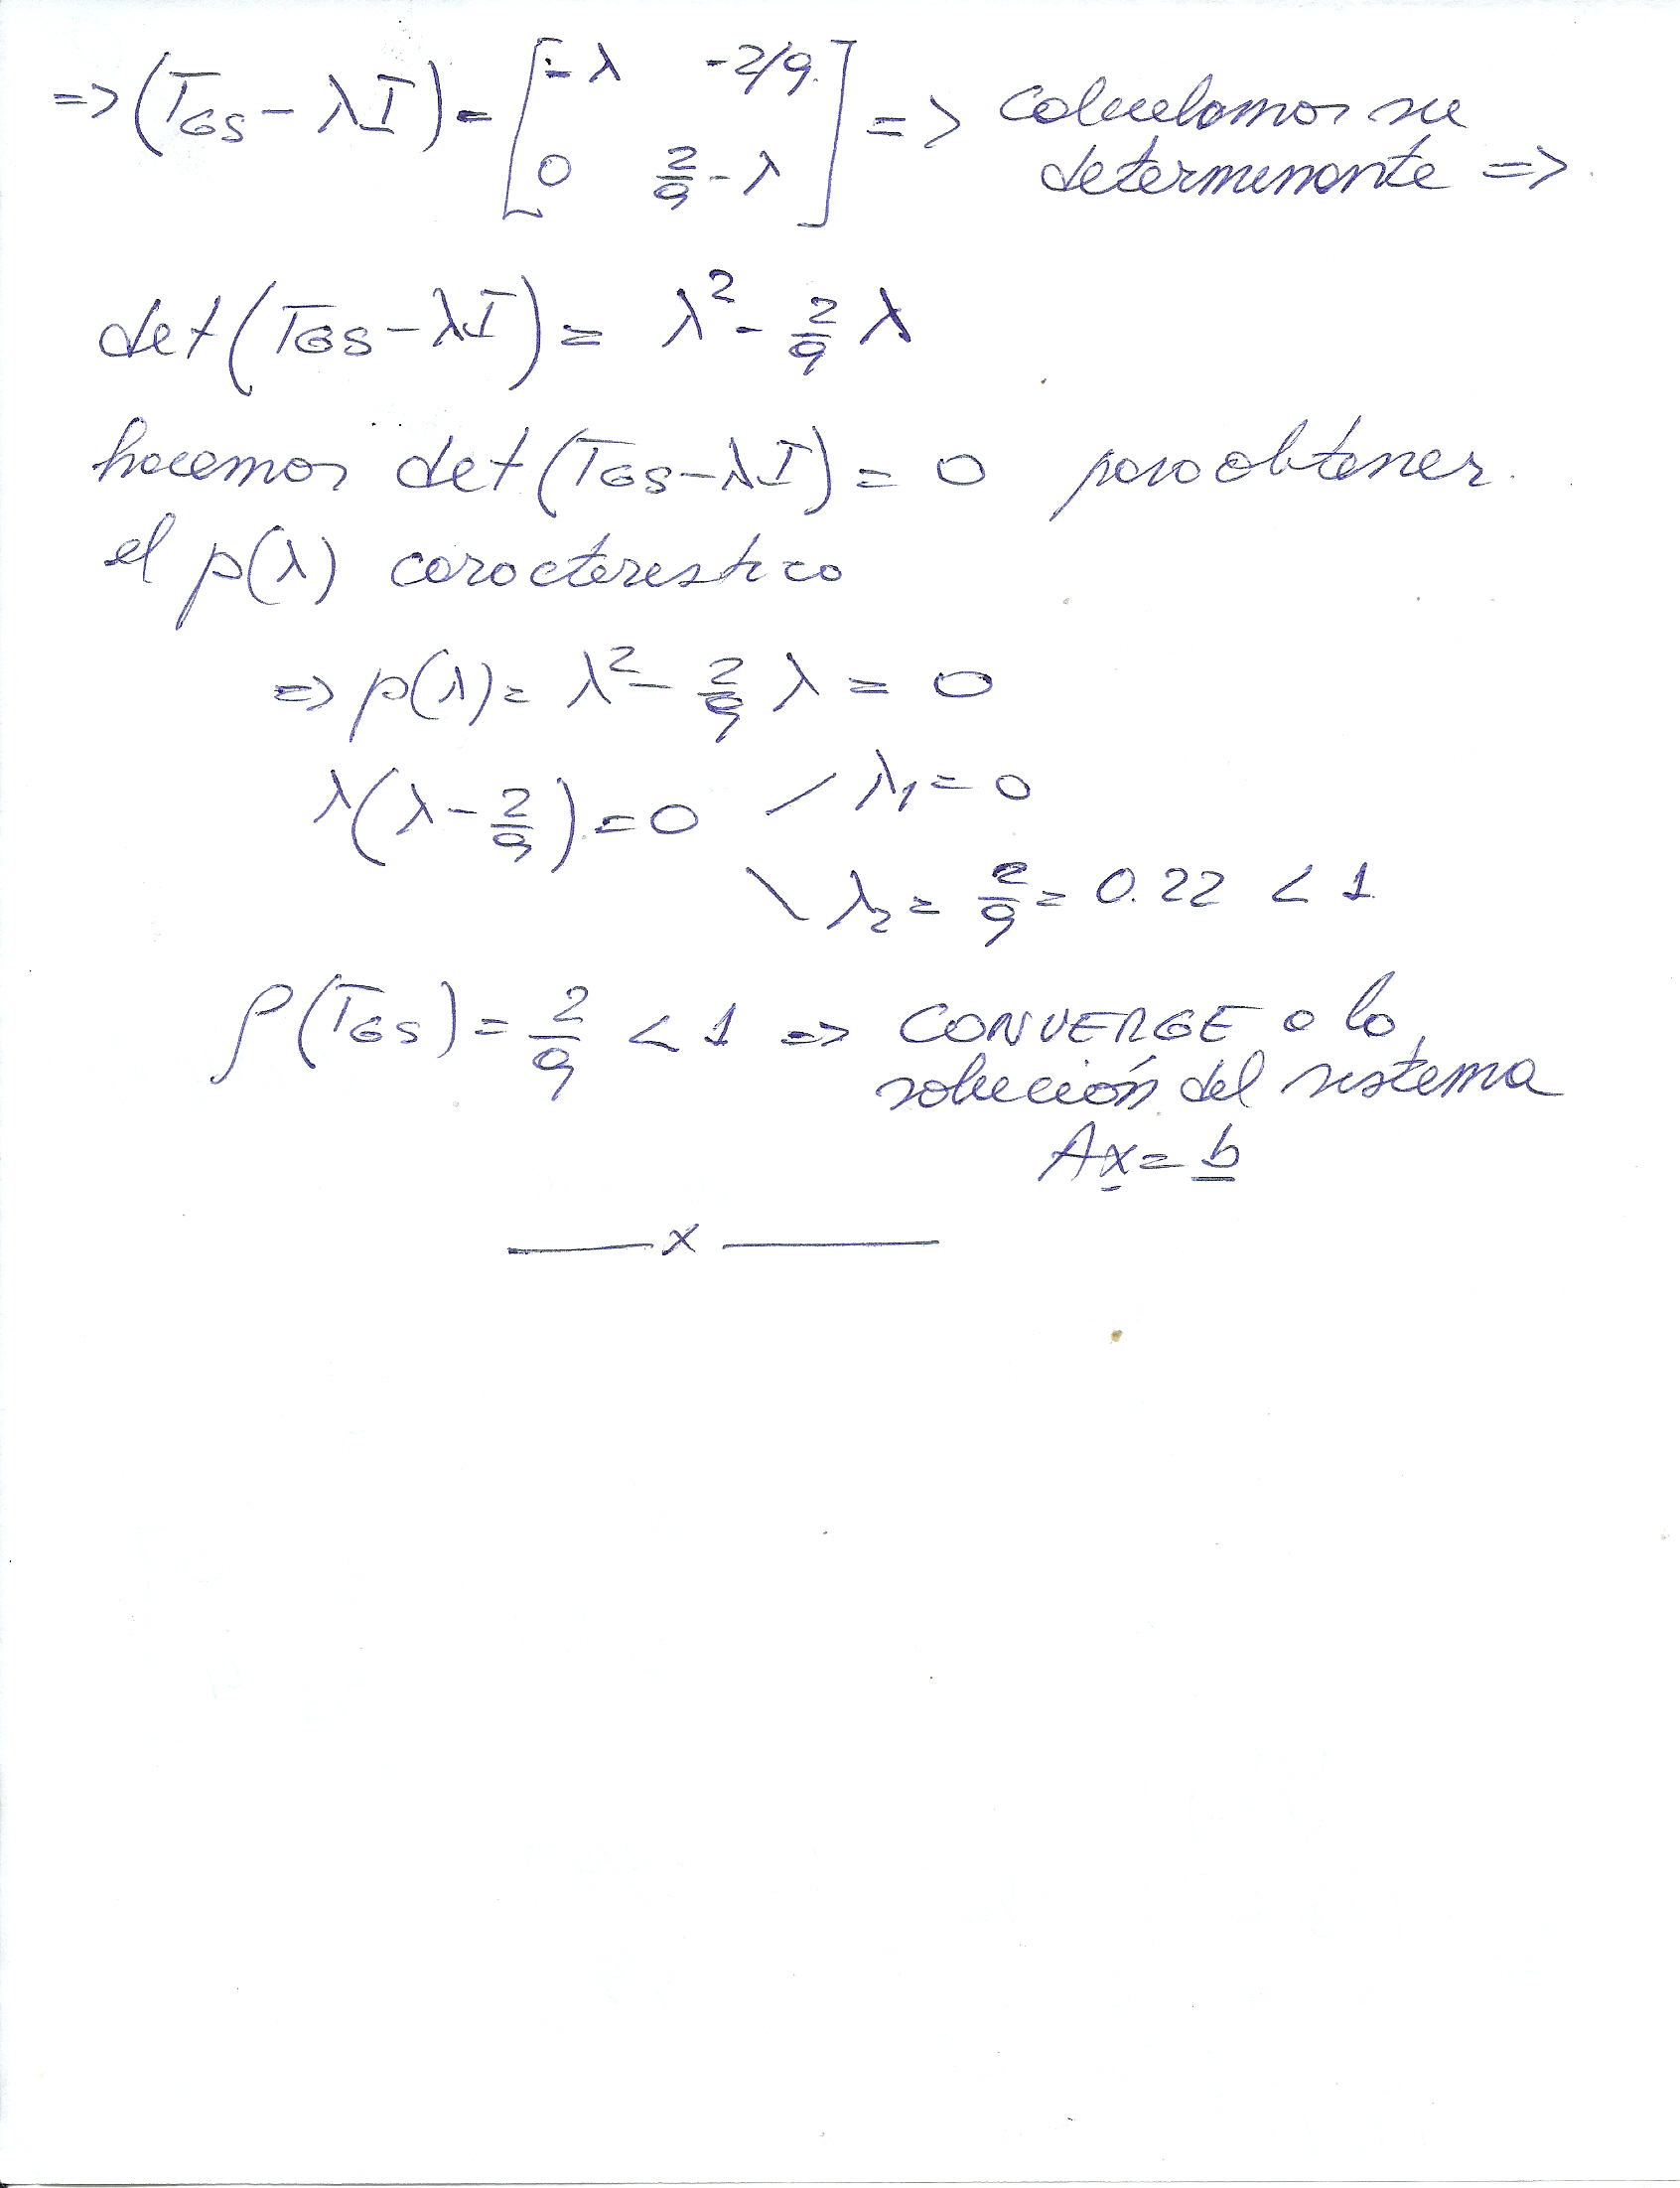 => (T_GS - λI) = [ -λ  -2/9 ; 0  2/9 - λ ] => calculamos su
determinante =>
det(T_GS - λI) = λ² - 2/9 λ
hacemos det(T_GS - λI) = 0 para obtener
el p(λ) característico
=> p(λ) = λ² - 2/9 λ = 0
λ(λ - 2/9) = 0 / λ₁ = 0
\ λ₂ = 2/9 = 0.22 < 1
ρ(T_GS) = 2/9 < 1 => CONVERGE a la
solución del sistema
Ax = b
——— x ———